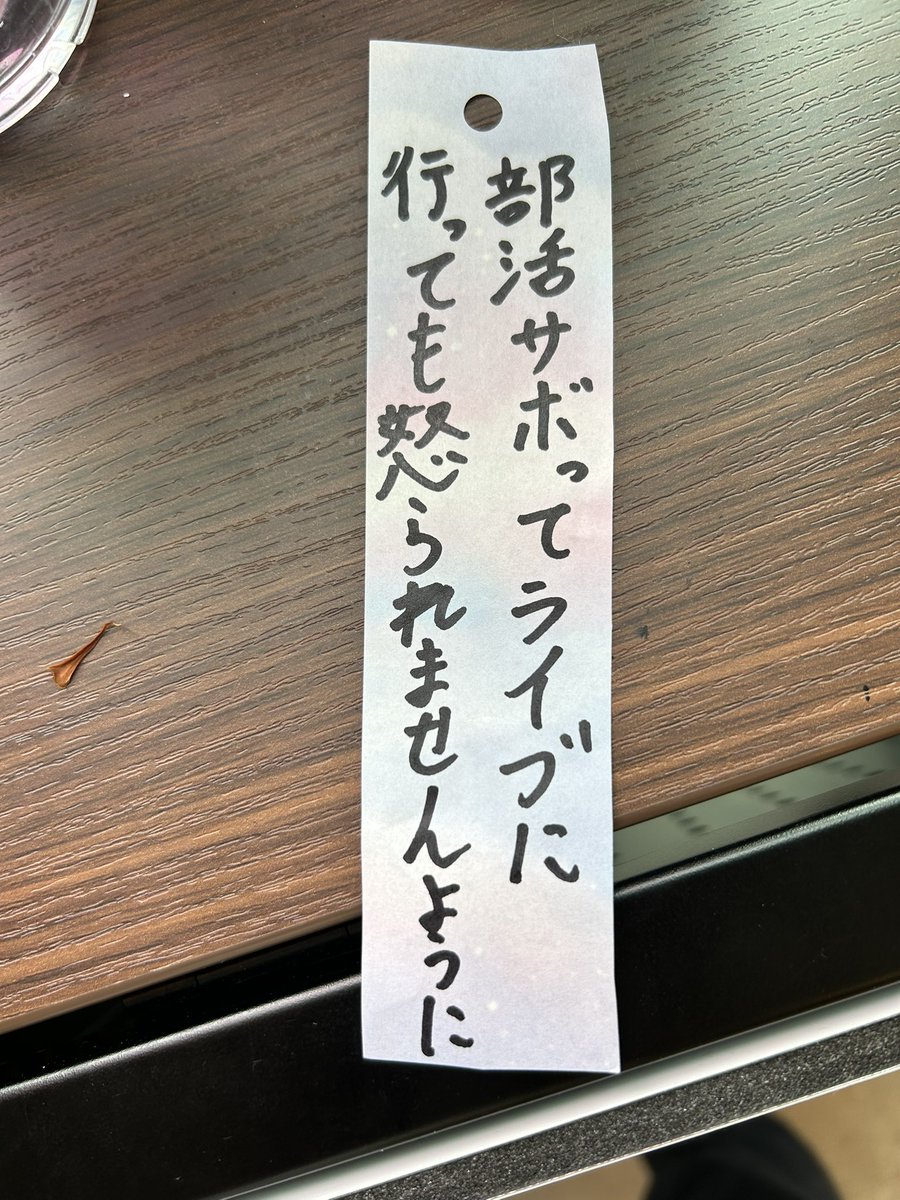 部活サボってライブに
行っても怒られませんように